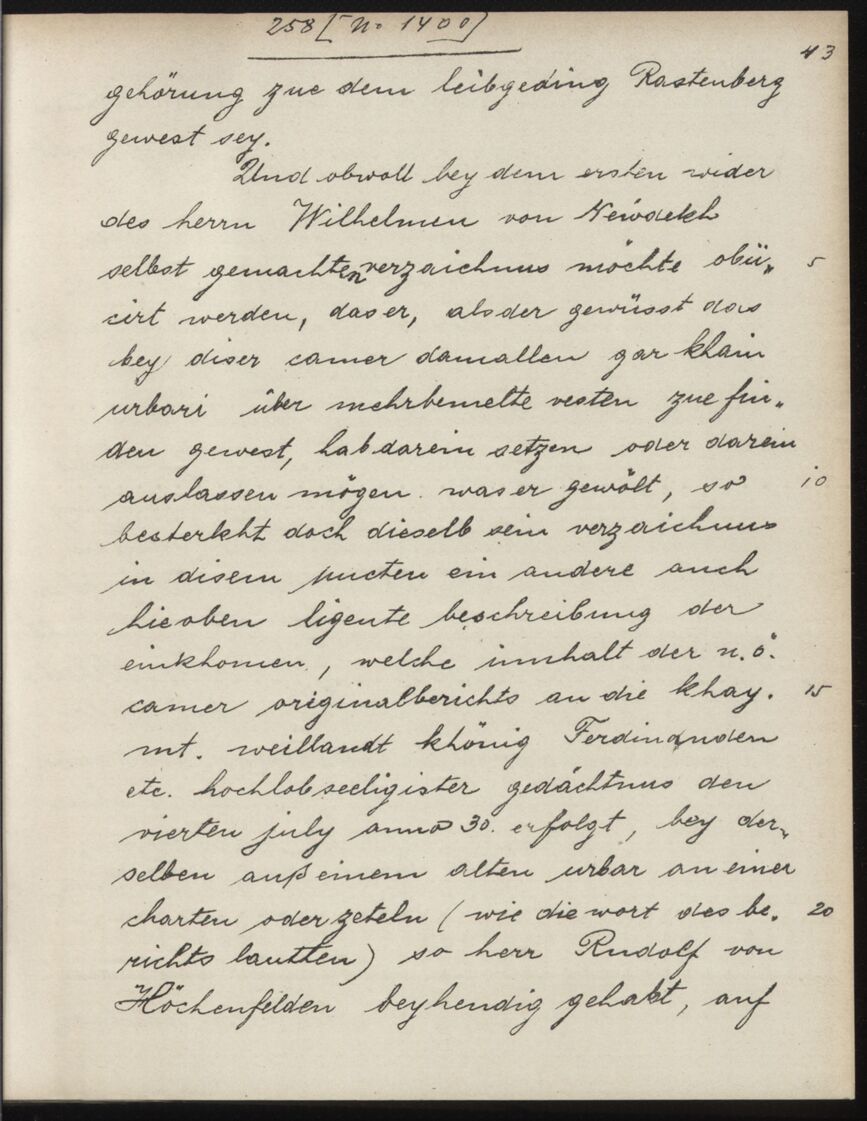 258 [No 1400]
43
gehörung zue dem leibgeding Rastenberg
gewest sey.
Und obwoll bey dem ersten wider
des herrn Wilhelmen von Neidekh
selbst gemachten verzaichnus möchte obii„ 5
cirt werden, das er, als der gewüsst das
bey diser camer damallen gar khain
urbari über mehrbemelte vesten zue fin„
den gewest, hab darein setzen oder darein
auslassen mögen was er gewölt, so 10
besterkht doch dieselb sein verzaichnus
in disem puncten ein andere auch
hieoben ligente beschreibung der
einkhomen, welche innhalt der n.ö.
camer originalberichts an die khay. 15
mt. weillandt khönig Ferdinanden
etc. hochlobseeligister gedächtnus den
vierten july anno 30. erfolgt, bey der„
selben auß einem alten urbar an einer
charten oder zeteln (wie die wort des be„ 20
richts lautten) so herr Rudolf von
Höchenfelden beyhendig gehabt, auf